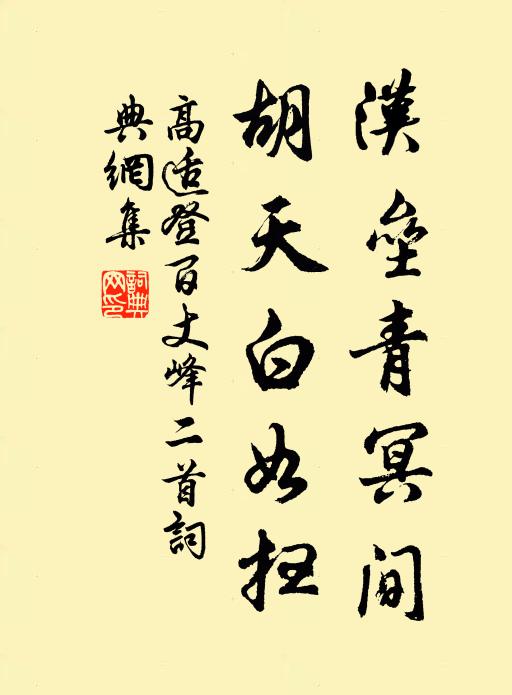 漢壘青冥間
胡天白如掃
高适登百丈峰二首詞
典網集
詞典網印